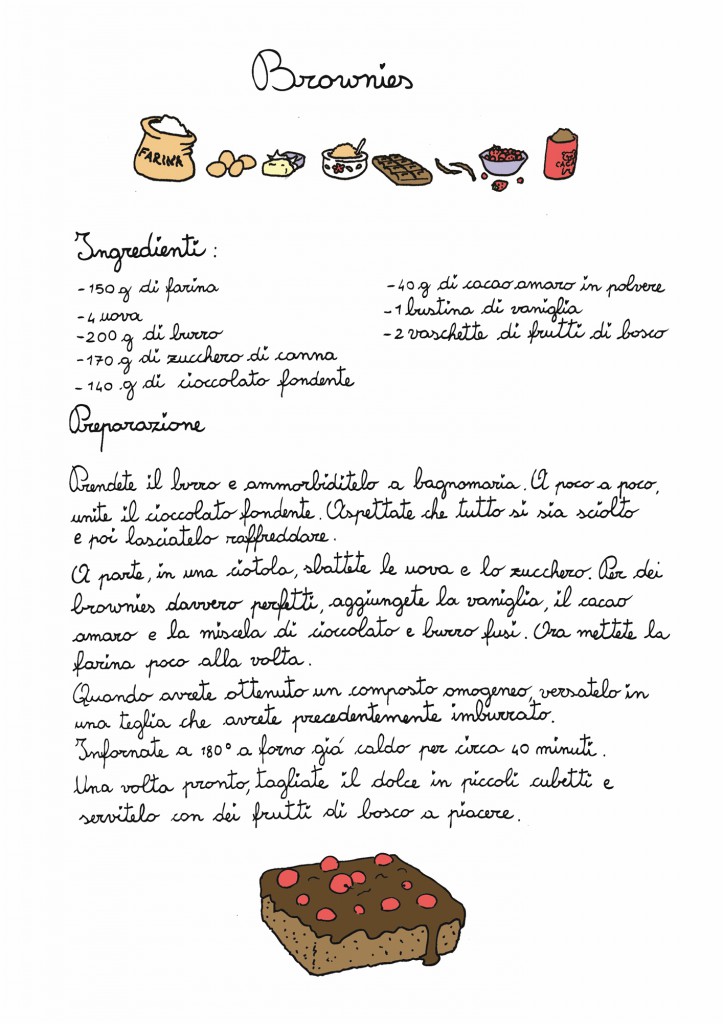 Brownies
FARINA
CACAO
Ingredienti :
- 150 g di farina
- 4 uova
- 200 g di burro
- 170 g di zucchero di canna
- 140 g di cioccolato fondente
- 40 g di cacao amaro in polvere
- 1 bustina di vaniglia
- 2 vaschette di frutti di bosco
Preparazione
Prendete il burro e ammorbiditelo a bagnomaria. A poco a poco,
unite il cioccolato fondente. Aspettate che tutto si sia sciolto
e poi lasciatelo raffreddare.
A parte, in una ciotola, sbattete le uova e lo zucchero. Per dei
brownies davvero perfetti, aggiungete la vaniglia, il cacao
amaro e la miscela di cioccolato e burro fusi. Ora mettete la
farina poco alla volta.
Quando avrete ottenuto un composto omogeneo, versatelo in
una teglia che avrete precedentemente imburrato.
Infornate a 180° a forno giá caldo per circa 40 minuti.
Una volta pronto, tagliate il dolce in piccoli cubetti e
servitelo con dei frutti di bosco a piacere.